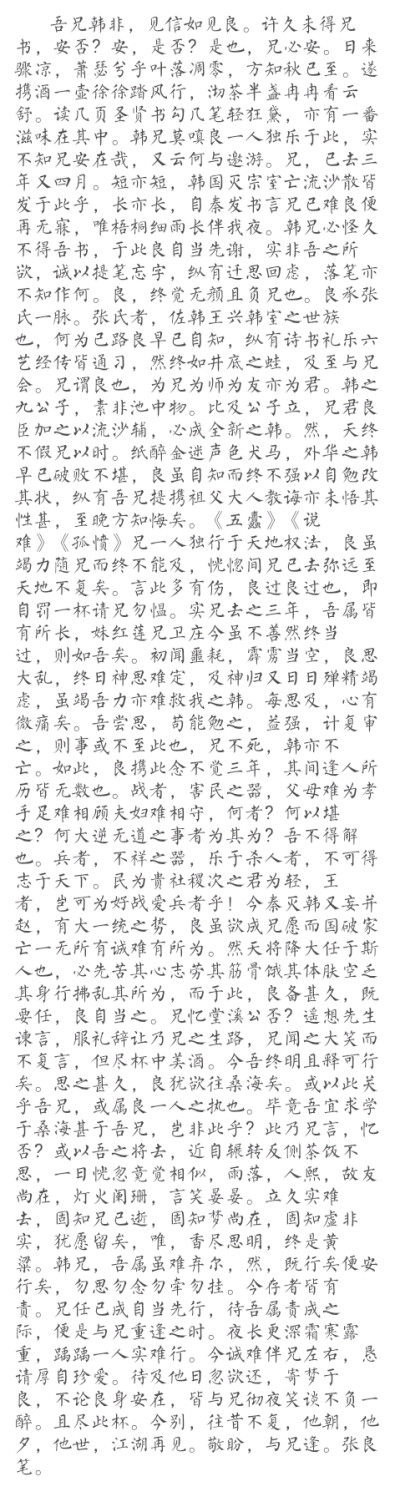 吾兄韩非，见信如见良。许久未得兄
书，安否？安，是否？是也，兄必安。日来
骤凉，萧瑟兮乎叶落凋零，方知秋已至。遂
携酒一壶徐徐踏风行，沏茶半盏冉冉看云
舒。读几页圣贤书勾几笔轻狂黛，亦有一番
滋味在其中。韩兄莫嗔良一人独乐于此，实
不知兄安在哉，又云何与邀游。兄，已去三
年又四月。短亦短，韩国灭宗室亡流沙散皆
发于此乎，长亦长，自秦发书言兄已难良便
再无寐，唯梧桐细雨长伴我夜。韩兄必怪久
不得吾书，于此良自当先谢，实非吾之所
欲，诚以提笔忘字，纵有迁思回虑，落笔亦
不知作何。良，终觉无颜且负兄也。良承张
氏一脉。张氏者，佐韩王兴韩室之世族
也，何为己路良早已自知，纵有诗书礼乐六
艺经传皆通习，然终如井底之蛙，及至与兄
会。兄谓良也，为兄为师为友亦为君。韩之
九公子，素非池中物。比及公子立，兄君良
臣加之以流沙辅，必成全新之韩。然，天终
不假兄以时。纸醉金迷声色犬马，外华之韩
早已破败不堪，良虽自知而终不强以自勉改
其状，纵有吾兄提携祖父大人教诲亦未悟其
性甚，至晚方知悔矣。《五蠹》《说
难》《孤愤》兄一人独行于天地权法，良虽
竭力随兄而终不能及，恍惚间兄已去弥远至
天地不复矣。言此多有伤，良过良过也，即
自罚一杯请兄勿愠。实兄去之三年，吾属皆
有所长，妹红莲兄卫庄今虽不善然终当
过，则如吾矣。初闻噩耗，霹雳当空，良思
大乱，终日神思难定，及神归又日日殚精竭
虑，虽竭吾力亦难救我之韩。每思及，心有
微痛矣。吾尝思，苟能勉之，益强，计复审
之，则事或不至此也，兄不死，韩亦不
亡。如此，良携此念不觉三年，其间逢人所
历皆无数也。战者，害民之器，父母难为孝
手足难相顾夫妇难相守，何者？何以堪
之？何大逆无道之事者为其为？吾不得解
也。兵者，不祥之器，乐于杀人者，不可得
志于天下。民为贵社稷次之君为轻，王
者，岂可为好战爱兵者乎！今秦灭韩又妄并
赵，有大一统之势，良虽欲成兄愿而国破家
亡一无所有诚难有所为。然天将降大任于斯
人也，必先苦其心志劳其筋骨饿其体肤空乏
其身行拂乱其所为，而于此，良备甚久，既
要任，良自当之。兄忆堂溪公否？遥想先生
谏言，服礼辞让乃兄之生路，兄闻之大笑而
不复言，但尽杯中美酒。今吾终明且释可行
矣。思之甚久，良犹欲往桑海矣。或以此关
乎吾兄，或属良一人之执也。毕竟吾宜求学
于桑海甚于吾兄，岂非此乎？此乃兄言，忆
否？或以吾之将去，近自辗转反侧茶饭不
思，一日恍忽竟觉相似，雨落，人熙，故友
尚在，灯火阑珊，言笑晏晏。立久实难
去，固知兄已逝，固知梦尚在，固知虚非
实，犹愿留矣，唯，香尽思明，终是黄
粱。韩兄，吾属虽难弃尔，然，既行矣便安
行矣，勿思勿念勿牵勿挂。今存者皆有
责。兄任已成自当先行，待吾属责成之
际，便是与兄重逢之时。夜长更深霜寒露
重，踽踽一人实难行。今诚难伴兄左右，恳
请厚自珍爱。待及他日忽欲还，寄梦于
良，不论良身安在，皆与兄彻夜笑谈不负一
醉。且尽此杯。今别，往昔不复，他朝，他
夕，他世，江湖再见。敬盼，与兄逢。张良
笔。